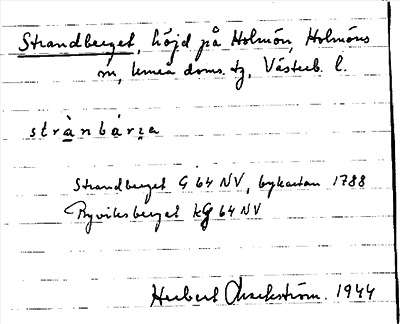 Strandberget, höjd på Holmön, Holmöns
sn, Umeå doms. tg, Västerb. l.
strànbárⱬa
Strandberget G 64 NV, bykartan 1788
Byviksberget kg 64 NV
Herbert Markström. 1944